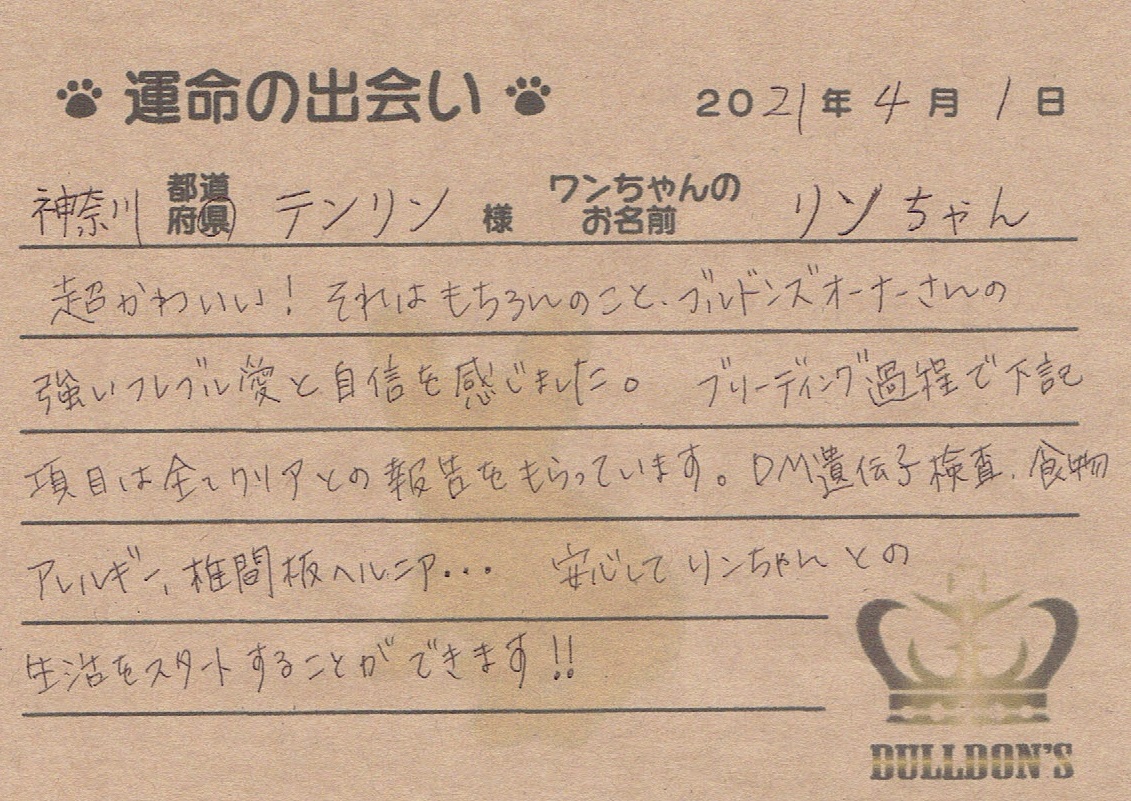 運命の出会い 2021年4月1日
神奈川 都道府県 テンリン 様 ワンちゃんのお名前 リンちゃん
超かわいい！それはもちろんのこと、ブルドンズオーナーさんの
強いフレブル愛と自信を感じました。 ブリーディング過程で下記
項目は全てクリアとの報告をもらっています。DM遺伝子検査、食物
アレルギー、椎間板ヘルニア... 安心してリンちゃんとの
生活をスタートすることができます!!
BULLDON'S